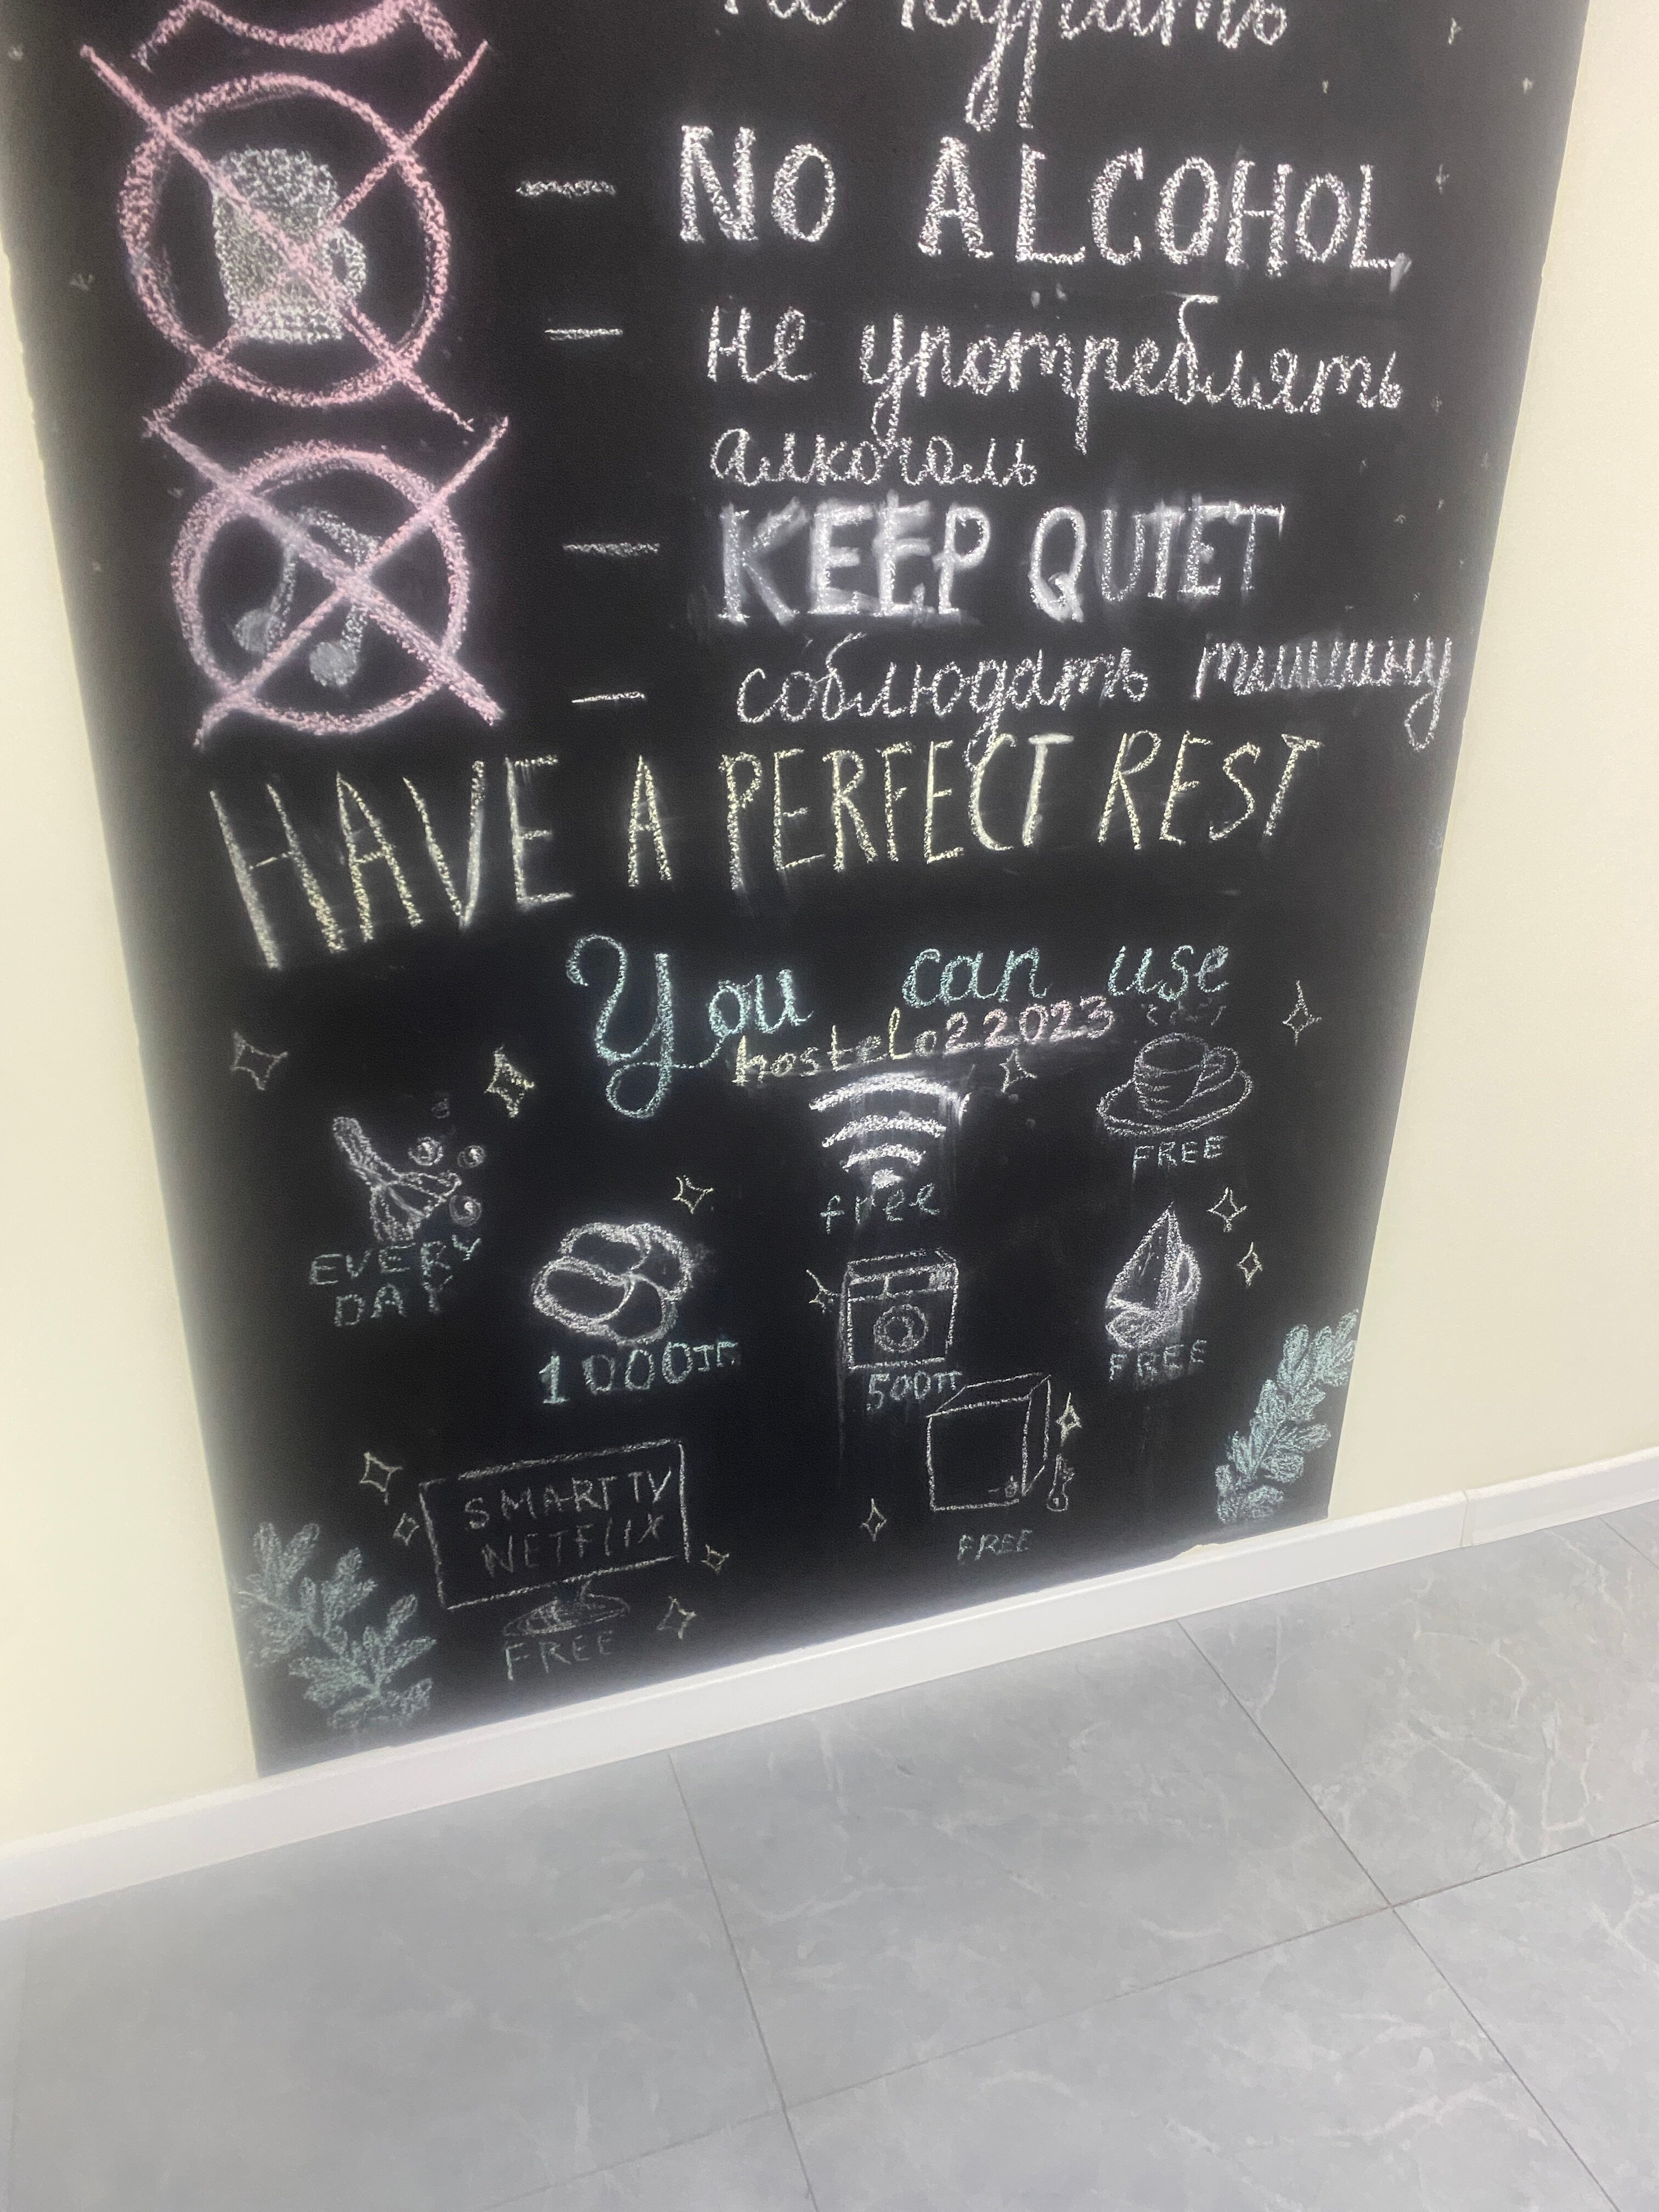 не курить
— NO ALCOHOL
— не употреблять
алкоголь
— KEEP QUIET
— соблюдать тишину
HAVE A PERFECT REST
You can use
hostelo22023
FREE
free
EVERY
DAY
1000тг
500тг
FREE
SMART TV
NETFLIX
FREE
FREE